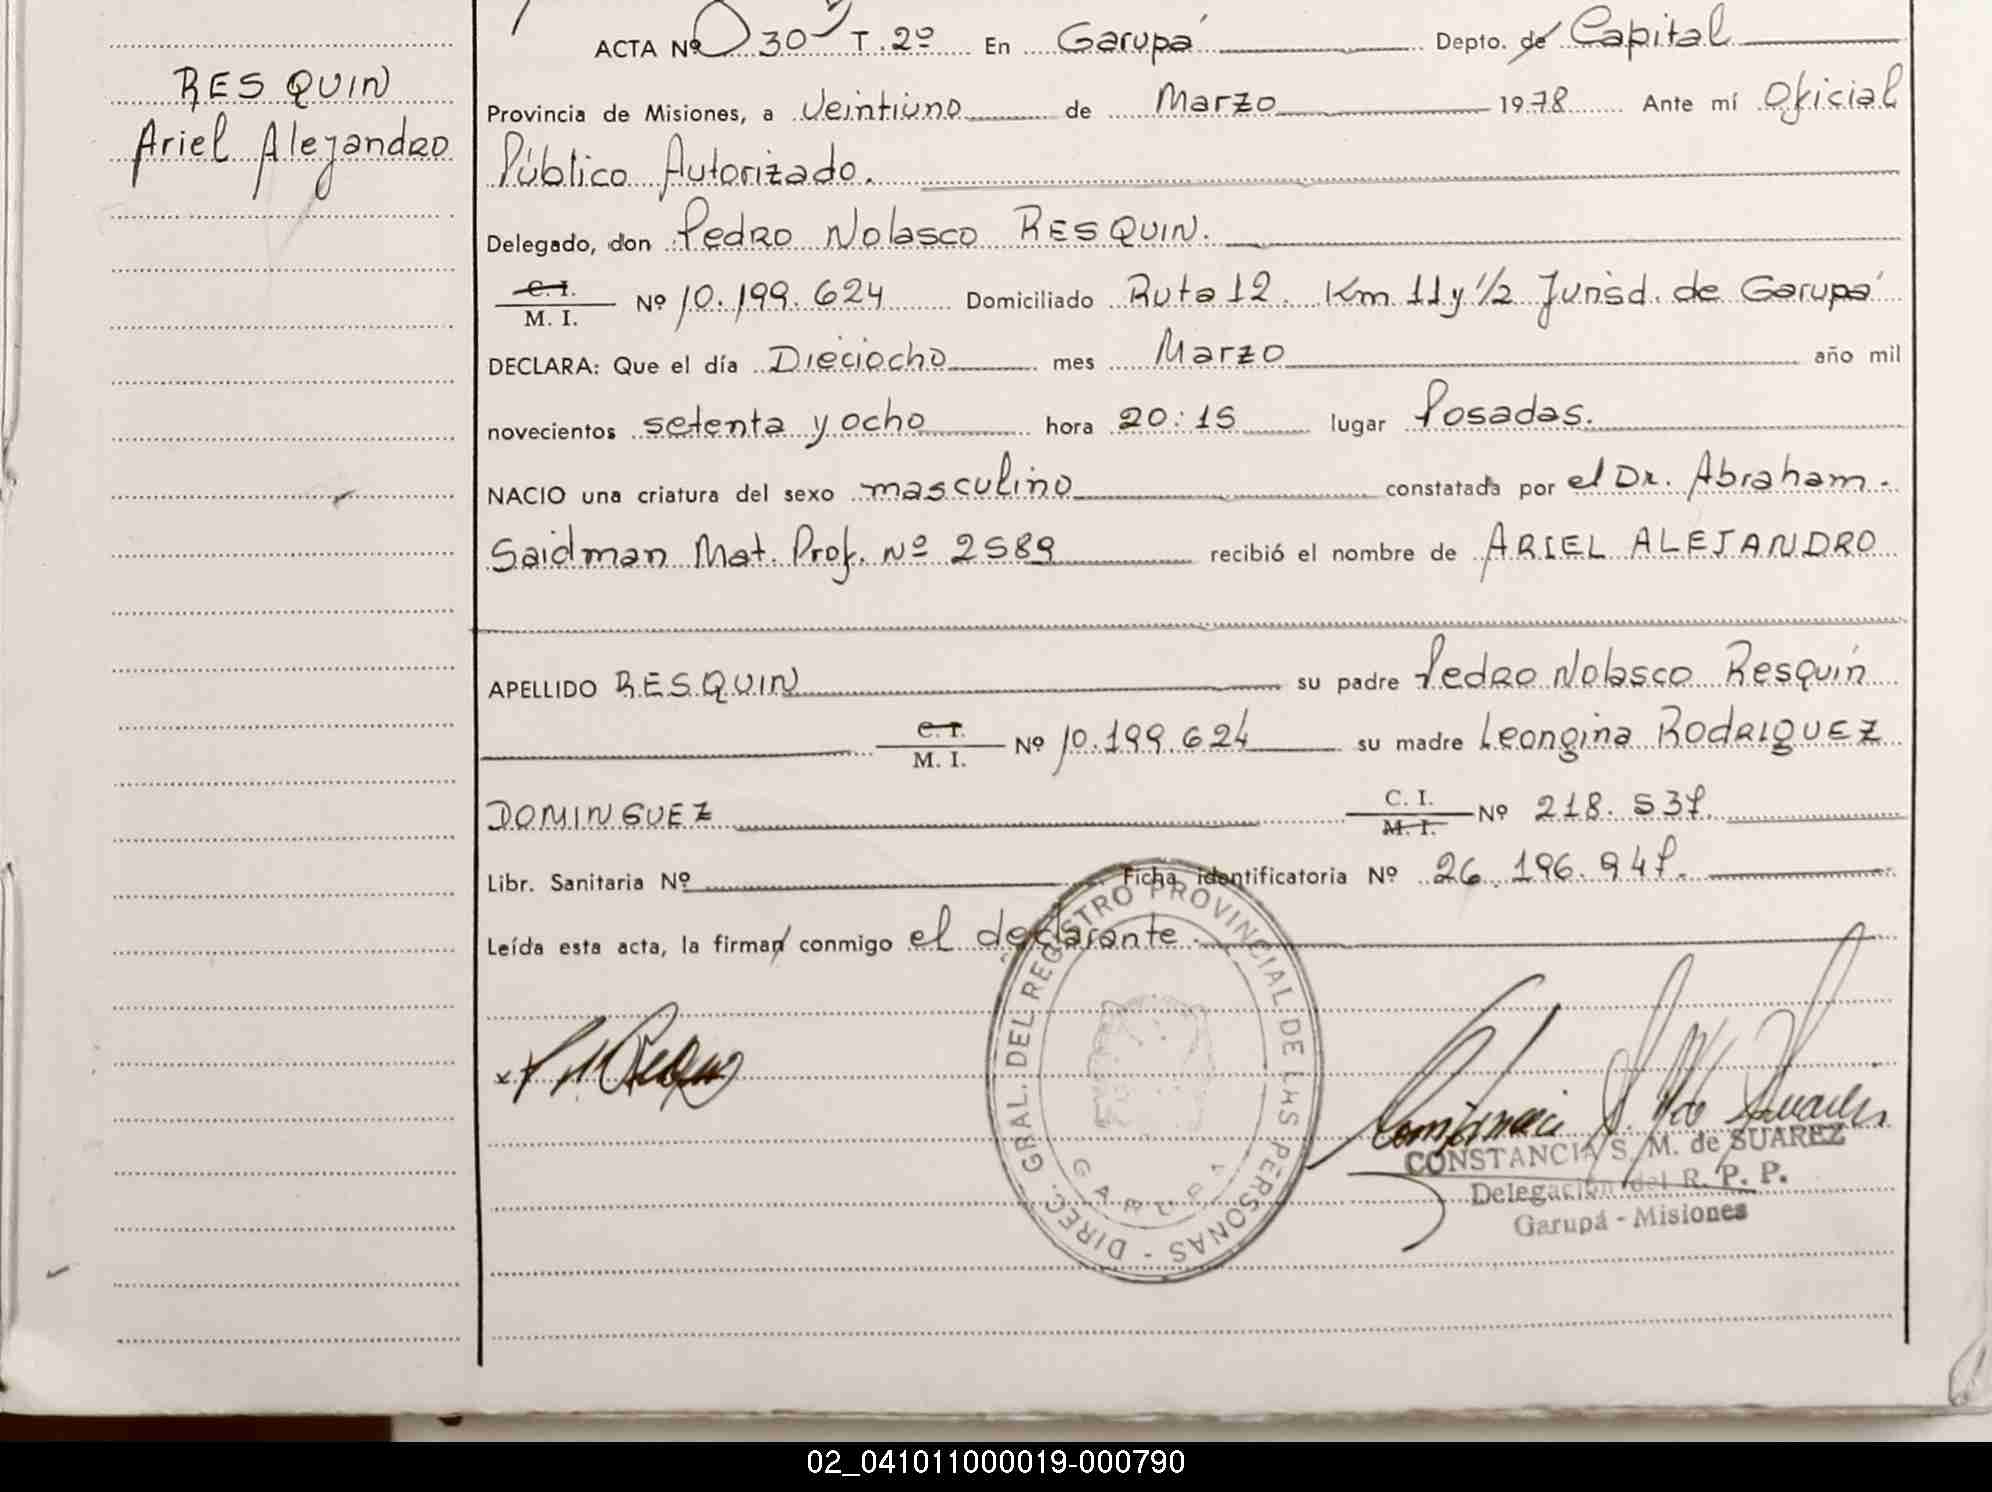 RESQUIN
Ariel Alejandro
ACTA Nº 30 T. 2º En Garupá Depto. de Capital
Provincia de Misiones, a Veintiuno de Marzo 1978 Ante mí Oficial
Público Autorizado.
Delegado, don Pedro Nolasco RESQUIN.
C. I.
M. I. Nº 10.199.624 Domiciliado Ruta 12. Km 11 y ½ Jurisd. de Garupá
DECLARA: Que el día Dieciocho mes Marzo año mil
novecientos setenta y ocho hora 20:15 lugar Posadas.
NACIO una criatura del sexo masculino constatada por el Dr. Abraham.
Saidman Mat. Prof. Nº 2589 recibió el nombre de ARIEL ALEJANDRO
APELLIDO RESQUIN su padre Pedro Nolasco Resquín
C. I.
M. I. Nº 10.199.624 su madre Leongina RODRIGUEZ
DOMINGUEZ C. I.
M. I. Nº 218.537.
Libr. Sanitaria Nº Ficha identificatoria Nº 26.196.947.
Leída esta acta, la firman conmigo el declarante.
DIREC. GRAL. DEL REGISTRO PROVINCIAL DE LAS PERSONAS -
GARUPA
CONSTANCIA S. M. de SUAREZ
Delegación del R. P. P.
Garupá - Misiones
02_041011000019-000790